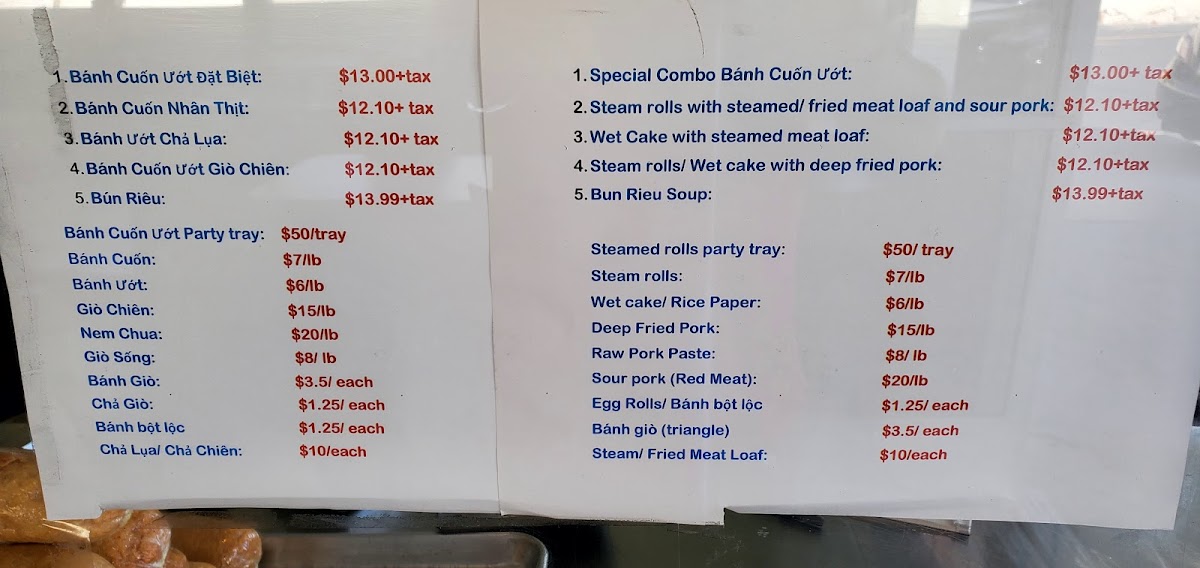 1. Bánh Cuốn Ướt Đặt Biệt: $13.00+tax
2. Bánh Cuốn Nhân Thịt: $12.10+ tax
3. Bánh Ướt Chả Lụa: $12.10+ tax
4. Bánh Cuốn Ướt Giò Chiên: $12.10+tax
5. Bún Riêu: $13.99+tax
Bánh Cuốn Ướt Party tray: $50/tray
Bánh Cuốn: $7/lb
Bánh Ướt: $6/lb
Giò Chiên: $15/lb
Nem Chua: $20/lb
Giò Sống: $8/ lb
Bánh Giò: $3.5/ each
Chả Giò: $1.25/ each
Bánh bột lộc $1.25/ each
Chả Lụa/ Chả Chiên: $10/each
1. Special Combo Bánh Cuốn Ướt: $13.00+ tax
2. Steam rolls with steamed/ fried meat loaf and sour pork: $12.10+tax
3. Wet Cake with steamed meat loaf: $12.10+tax
4. Steam rolls/ Wet cake with deep fried pork: $12.10+tax
5. Bun Rieu Soup: $13.99+tax
Steamed rolls party tray: $50/ tray
Steam rolls: $7/lb
Wet cake/ Rice Paper: $6/lb
Deep Fried Pork: $15/lb
Raw Pork Paste: $8/ lb
Sour pork (Red Meat): $20/lb
Egg Rolls/ Bánh bột lộc $1.25/ each
Bánh giò (triangle) $3.5/ each
Steam/ Fried Meat Loaf: $10/each